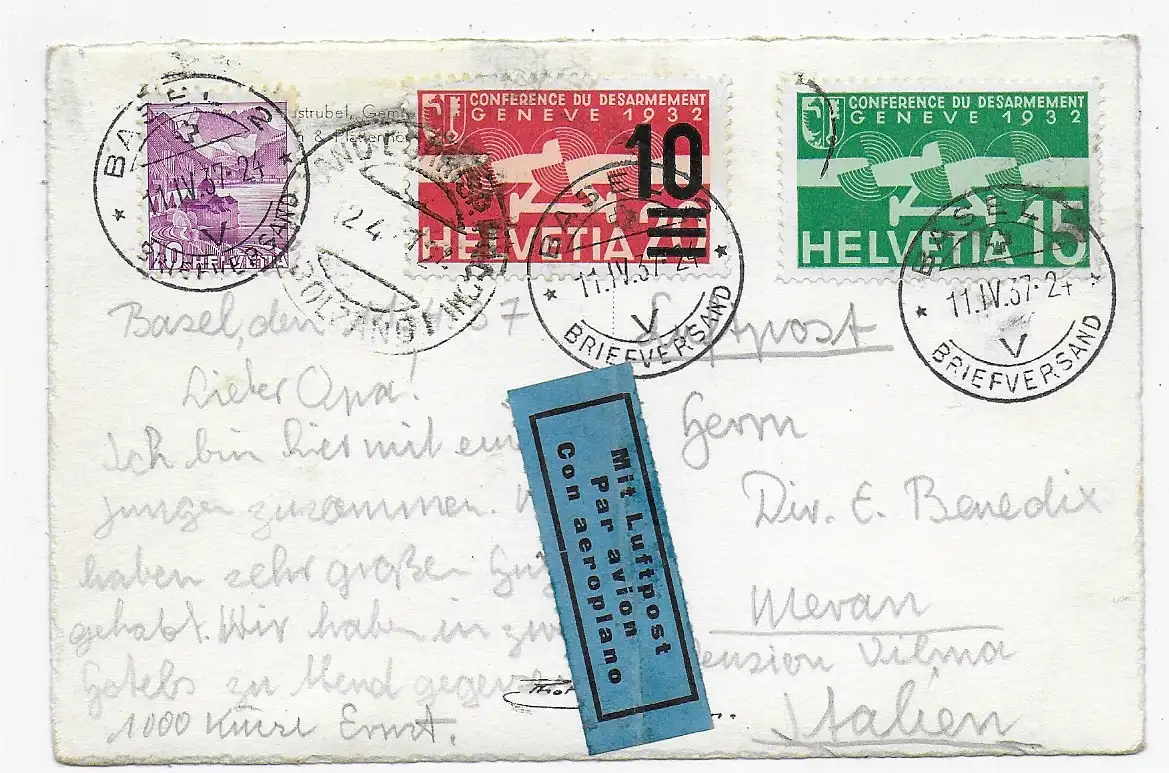 BASEL 2
11.IV.37-24
V
BRIEFVERSAND
HELVETIA
strubel, Gem
BOLZANO
12.4.
CONFÉRENCE DU DÉSARMEMENT
GENÈVE 1932
10
HELVETIA 20
BASEL
11.IV.37-24
V
BRIEFVERSAND
CONFÉRENCE DU DÉSARMEMENT
GENÈVE 1932
HELVETIA 15
BASEL
11.IV.37-24
V
BRIEFVERSAND
Basel, den 37
Lieber Opa!
Ich bin hier mit
jungen zusammen.
haben sehr großen
gehabt. Wir haben in
Hotels zu Abend
1000 Küsse Ernst.
Mit Luftpost
Par avion
Con aeroplano
Luftpost
Herrn
Dir. E. Benedix
Meran
ension Vilma
Italien